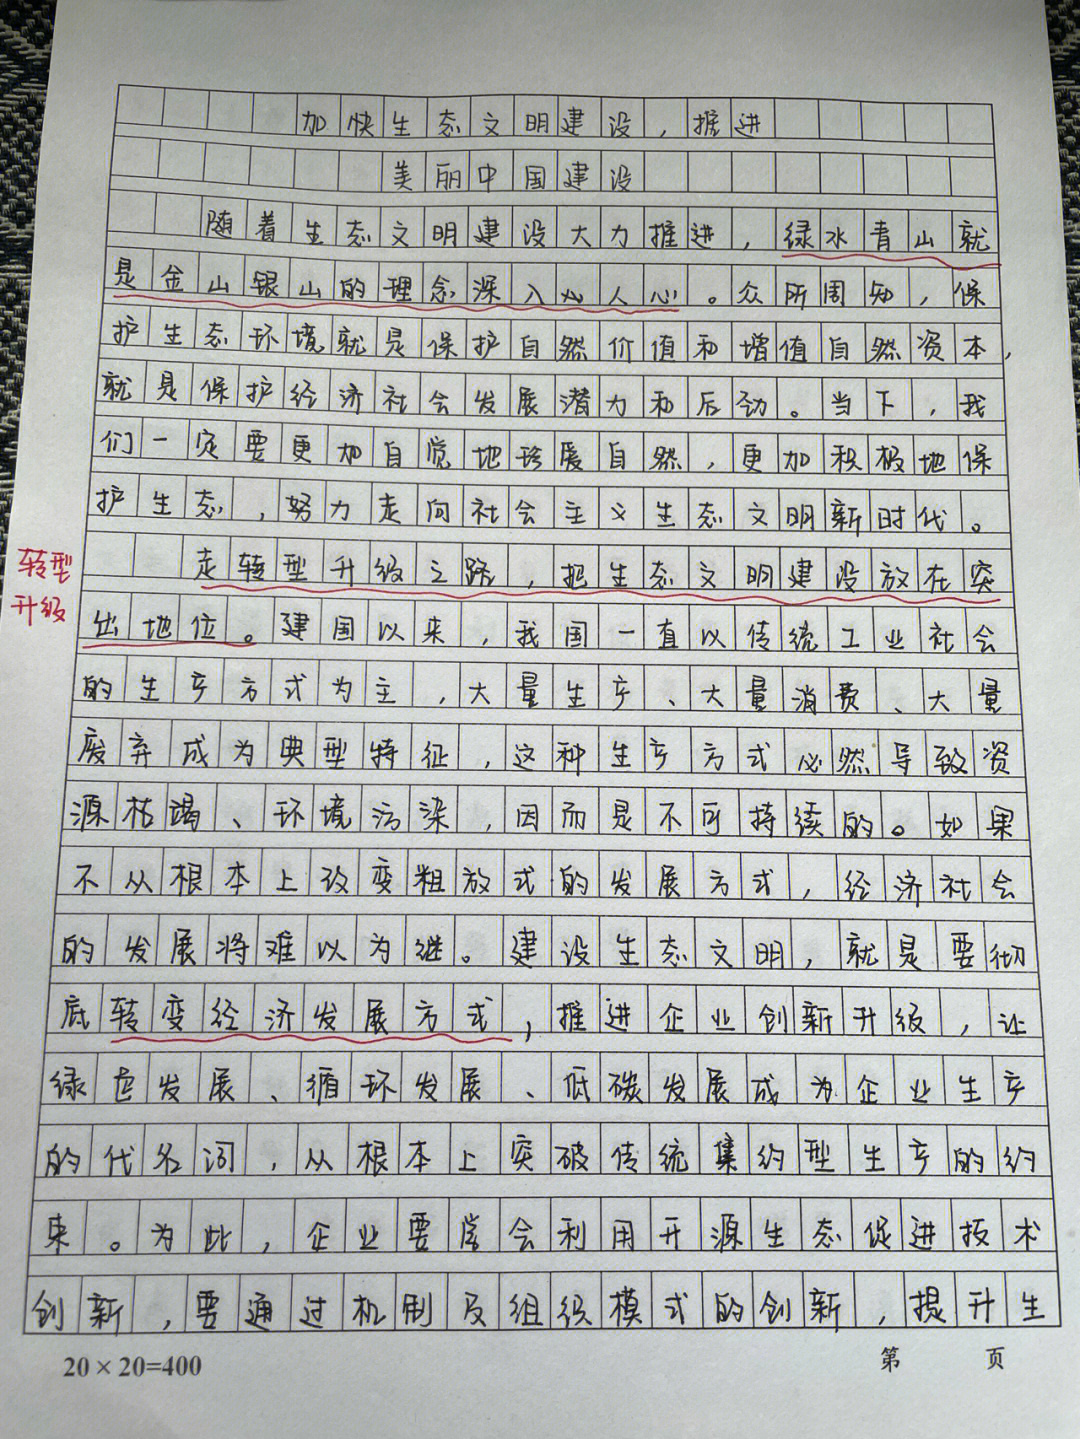 加快生态文明建设，推进
美丽中国建设
随着生态文明建设大力推进，绿水青山就
是金山银山的理念深入人心。众所周知，保
护生态环境就是保护自然价值和增值自然资本，
就是保护经济社会发展潜力和后劲。当下，我
们一定要更加自觉地珍爱自然，更加积极地保
护生态，努力走向社会主义生态文明新时代。
走转型升级之路，把生态文明建设放在突
转型
升级
出地位。建国以来，我国一直以传统工业社会
的生产方式为主，大量生产、大量消费、大量
废弃成为典型特征，这种生产方式必然导致资
源枯竭、环境污染，因而是不可持续的。如果
不从根本上改变粗放式的发展方式，经济社会
的发展将难以为继。建设生态文明，就是要彻
底转变经济发展方式，推进企业创新升级，让
绿色发展、循环发展、低碳发展成为企业生产
的代名词，从根本上突破传统集约型生产的约
束。为此，企业要学会利用开源生态促进技术
创新，要通过机制及组织模式的创新，提升生
20×20=400
第 页